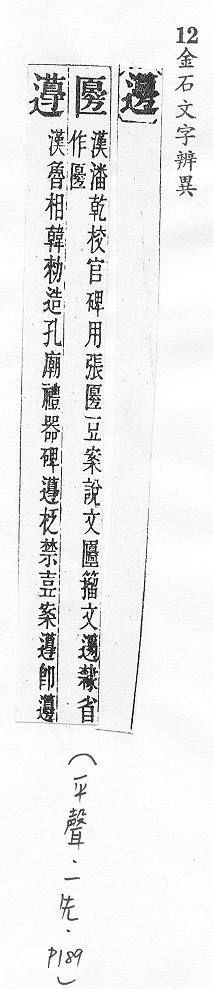 12金石文字辨異
邊
漢潘乾校官碑用張豆案說文籀文邊隸省
作
漢魯相韓勑造孔廟禮器碑柉禁壴案即
(平聲.一先.P189)